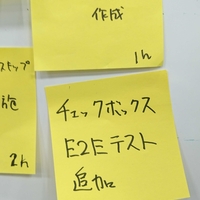 作成
1h
ステップ
2h
チェックボックス
E2Eテスト
追加